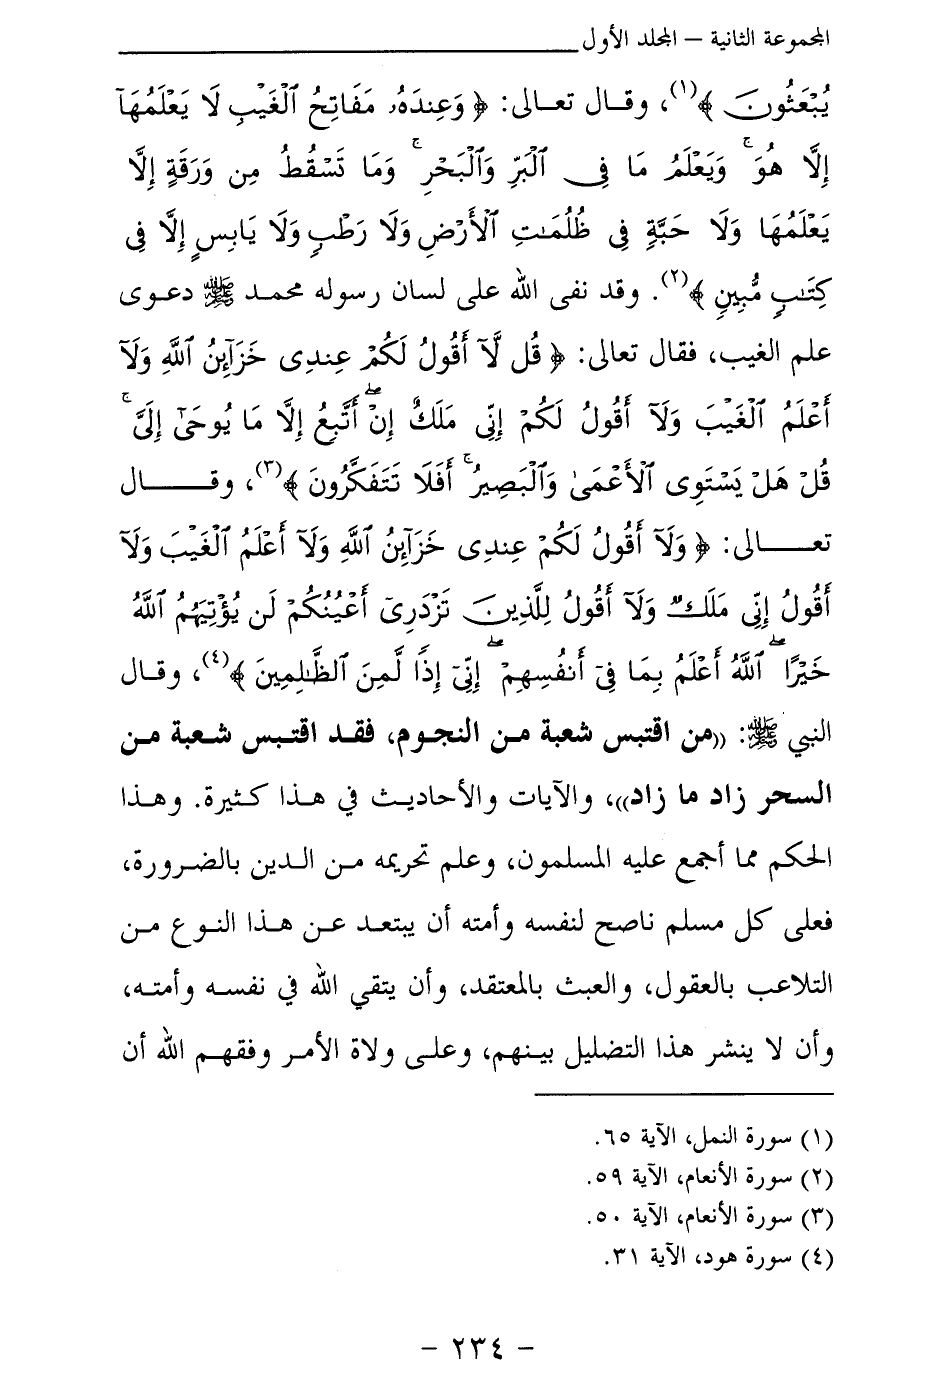 المجموعة الثانية – المجلد الأول
يُبْعَثُونَ ﴾(١)، وقال تعالى: ﴿ وَعِندَهُۥ مَفَاتِحُ ٱلْغَيْبِ لَا يَعْلَمُهَآ
إِلَّا هُوَ ۚ وَيَعْلَمُ مَا فِى ٱلْبَرِّ وَٱلْبَحْرِ ۚ وَمَا تَسْقُطُ مِن وَرَقَةٍ إِلَّا
يَعْلَمُهَا وَلَا حَبَّةٍ فِى ظُلُمَـٰتِ ٱلْأَرْضِ وَلَا رَطْبٍ وَلَا يَابِسٍ إِلَّا فِى
كِتَـٰبٍ مُّبِينٍ ﴾(٢). وقد نفى الله على لسان رسوله محمد ﷺ دعوى
علم الغيب، فقال تعالى: ﴿ قُل لَّآ أَقُولُ لَكُمْ عِندِى خَزَآئِنُ ٱللَّهِ وَلَآ
أَعْلَمُ ٱلْغَيْبَ وَلَآ أَقُولُ لَكُمْ إِنِّى مَلَكٌ ۖ إِنْ أَتَّبِعُ إِلَّا مَا يُوحَىٰٓ إِلَىَّ ۚ
قُلْ هَلْ يَسْتَوِى ٱلْأَعْمَىٰ وَٱلْبَصِيرُ ۚ أَفَلَا تَتَفَكَّرُونَ ﴾(٣)، وقـــــال
تعـــــالى: ﴿ وَلَآ أَقُولُ لَكُمْ عِندِى خَزَآئِنُ ٱللَّهِ وَلَآ أَعْلَمُ ٱلْغَيْبَ وَلَآ
أَقُولُ إِنِّى مَلَكٌ وَلَآ أَقُولُ لِلَّذِينَ تَزْدَرِىٓ أَعْيُنُكُمْ لَن يُؤْتِيَهُمُ ٱللَّهُ
خَيْرًا ۖ ٱللَّهُ أَعْلَمُ بِمَا فِىٓ أَنفُسِهِمْ ۖ إِنِّىٓ إِذًا لَّمِنَ ٱلظَّـٰلِمِينَ ﴾(٤)، وقال
النبي ﷺ: ((من اقتبس شعبة من النجوم، فقد اقتبس شعبة من
السحر زاد ما زاد))، والآيات والأحاديث في هذا كثيرة. وهذا
الحكم مما أجمع عليه المسلمون، وعلم تحريمه من الدين بالضرورة،
فعلى كل مسلم ناصح لنفسه وأمته أن يبتعد عن هذا النوع من
التلاعب بالعقول، والعبث بالمعتقد، وأن يتقي الله في نفسه وأمته،
وأن لا ينشر هذا التضليل بينهم، وعلى ولاة الأمر وفقهم الله أن
(١) سورة النمل، الآية ٦٥.
(٢) سورة الأنعام، الآية ٥٩.
(٣) سورة الأنعام، الآية ٥٠.
(٤) سورة هود، الآية ٣١.
– ٢٣٤ –